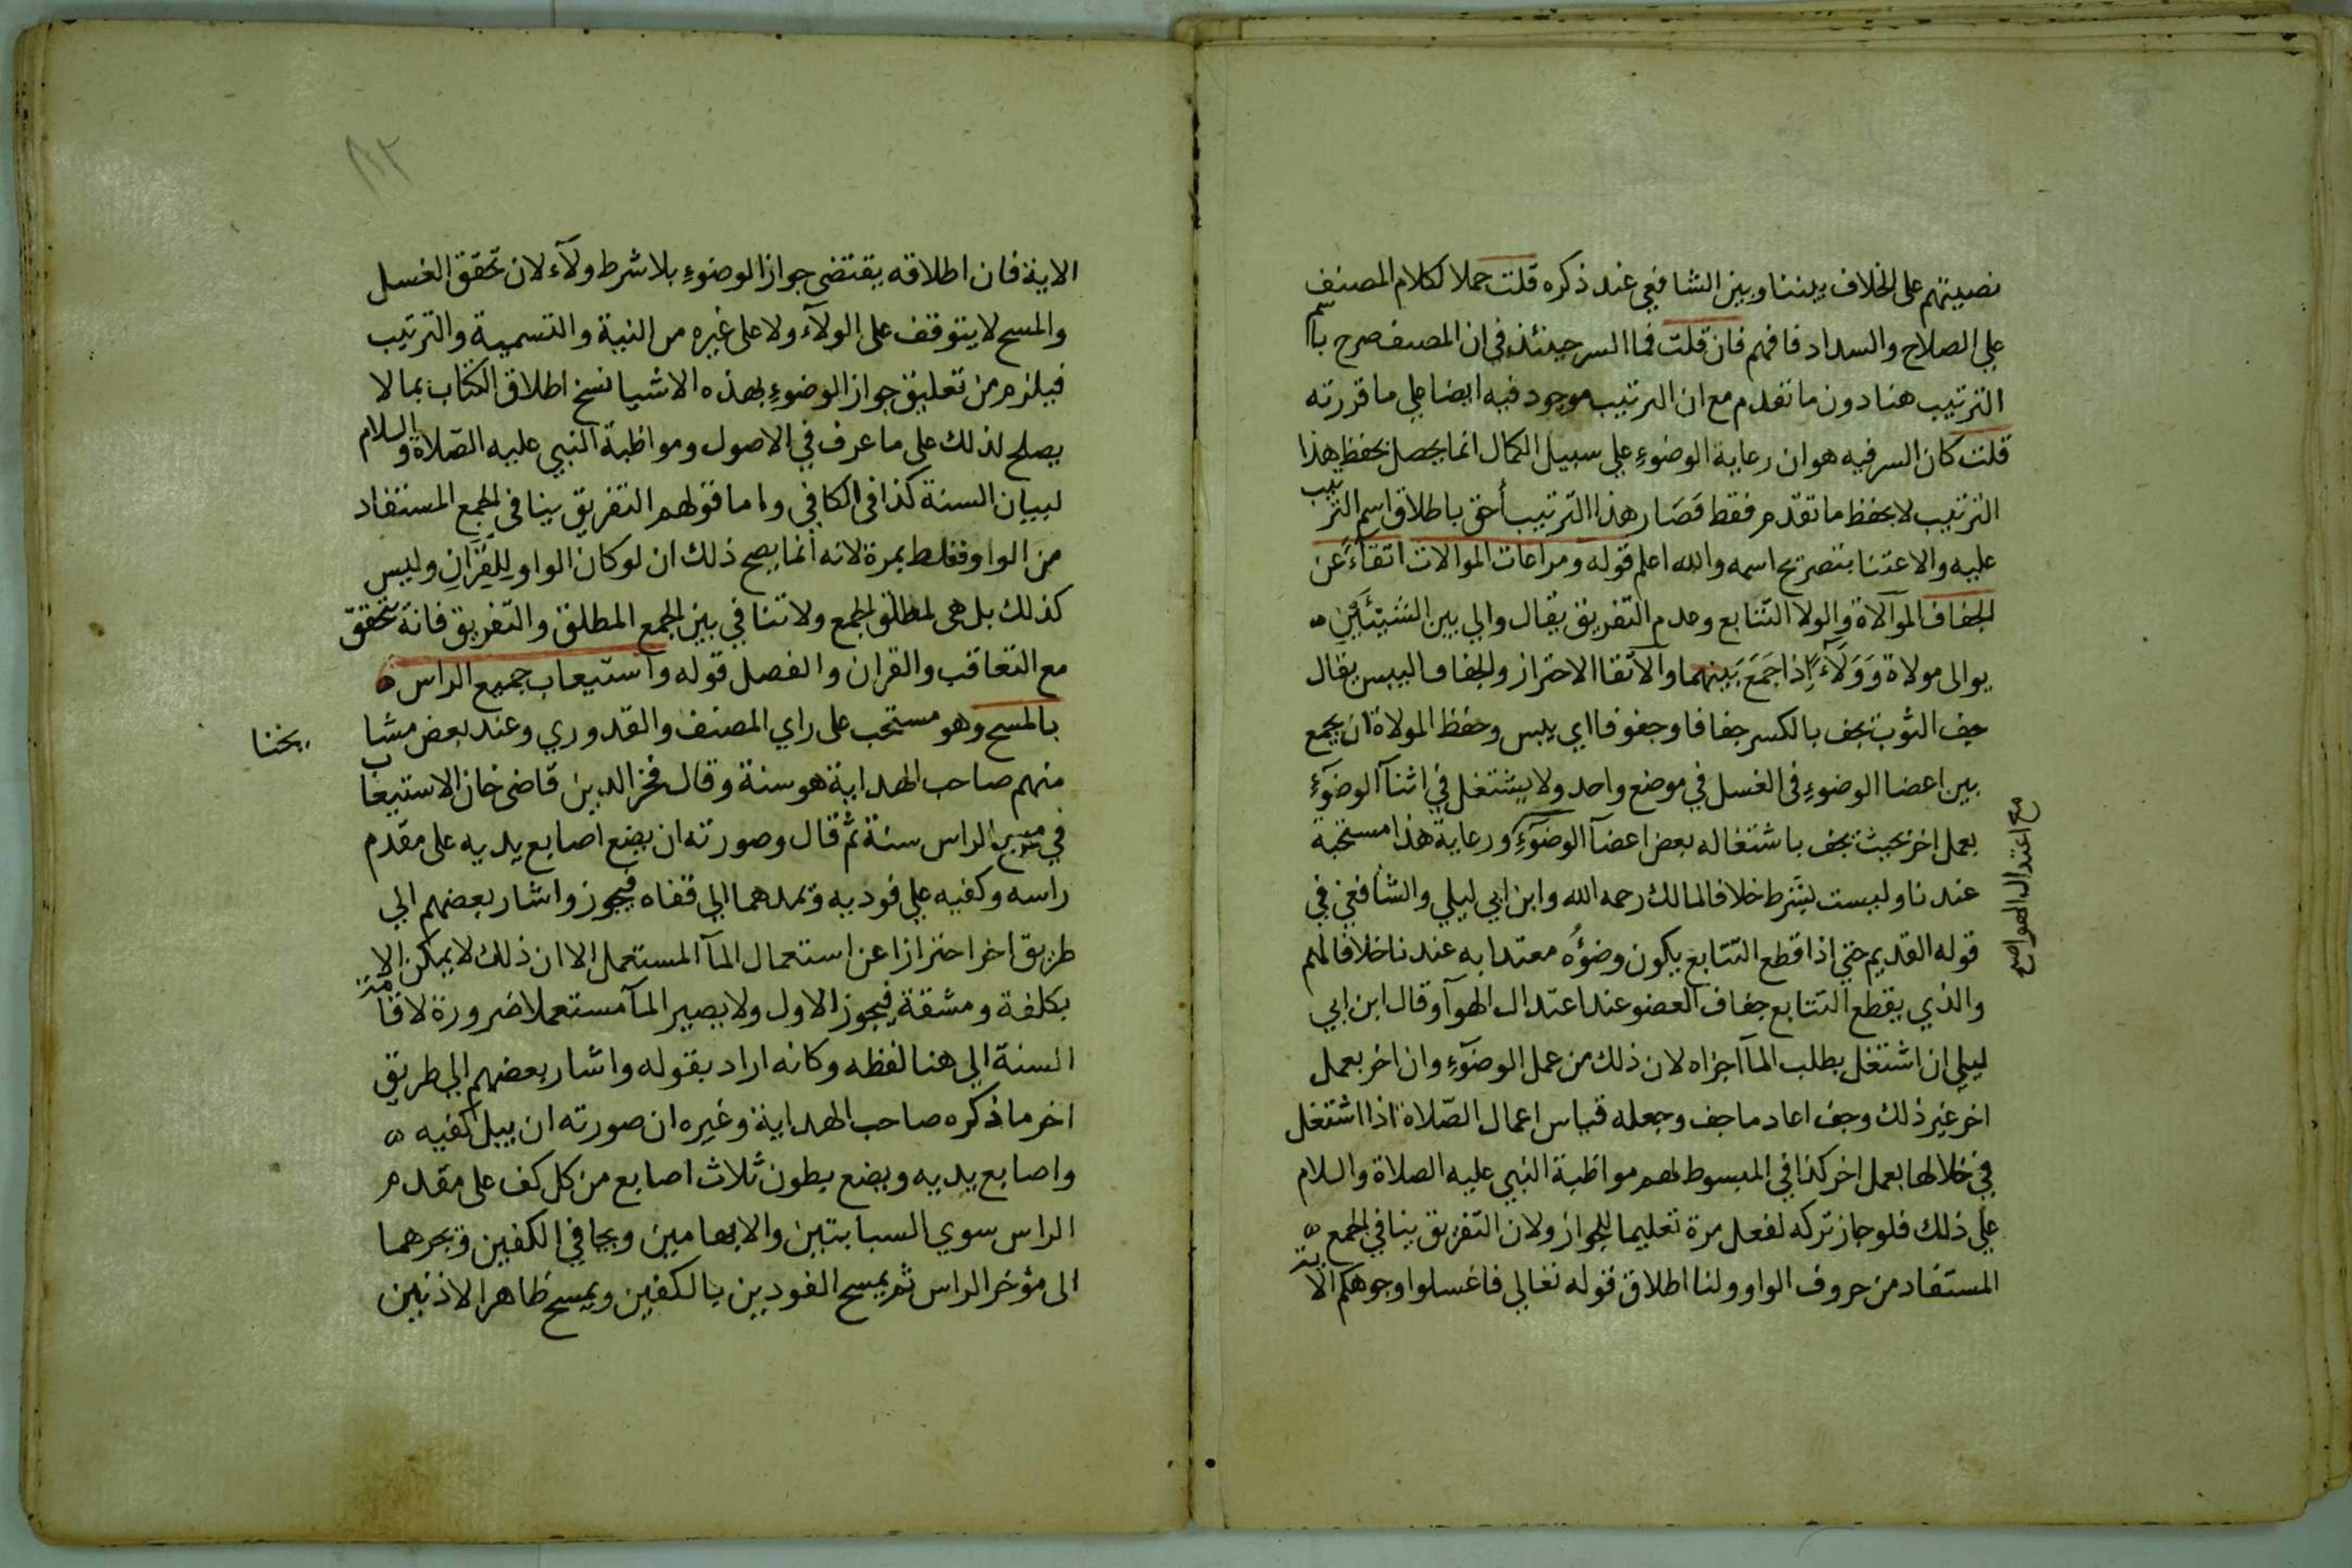 نصيتهم على الخلاف بيننا وبين الشافعي عند ذكره قلت حملا لكلام المصنف
على الصلاح والسداد فافهم فان قلت فما السر حينئذ في ان المصنف صرح باسم
الترتيب هنا دون ما تقدم مع ان الترتيب موجود فيه ايضا على ما قررته
قلت كان السر فيه هو ان رعاية الوضوءِ على سبيل الكمال انما يحصل بحفظ هذا
الترتيب لا بحفظ ما تقدم فقط فصَار هذا الترتيب أحق باطلاق اسم الترتيب
عليه والاعتنا بتصريح اسمه والله اعلم قوله ومراعات الموالات اتقاءً عن
الجفاف الموالاة والولا التتابع وعدم التفريق يقال والي بين الشيئين
يوالى مولاة وَوَلَآءً اِذا جَمَعَ بَينهما والاتقا الاحتراز والجفاف اليبس يقال
جف الثوب يجف بالكسر جفافا وجفوفا اي يبس وحفظ المولاة ان يجمع
بين اعضا الوضوءِ في الغسل في موضع واحد ولا يشتغل في اثنآ الوضوءِ
بعمل اخر بحيث يجف باشتغاله بعض اعضآ الوضوءِ ورعاية هذا مستحبة
مع اعتدال الهوا صح
عندنا وليست بشرط خلافا لمالك رحمه الله وابن ابي ليلي والشافعي في
قوله القديم حتي اذا قطع التتابع يكون وضؤُه معتدا به عندنا خلافا لهم
والذي يقطع التتابع جفاف العضو عند اعتدال الهوآ وقال ابن ابي
ليلي ان اشتغل بطلب المآ اجزاه لان ذلك من عمل الوضوءِ وان اخر بعمل
اخر غير ذلك وجف اعاد ما جف وجعله قياس اعمال الصّلاة اذا اشتغل
في خلالها بعمل اخر كذا في المبسوط لهم مواظبة النبي عليه الصلاة والسلام
على ذلك فلو جاز تركه لفعل مرة تعليما للجواز ولان التفريق ينافي الجمع
المستفاد من حروف الواو ولنا اطلاق قوله تعالي فاغسلوا وجوهكم الاية
٨٢
الاية فان اطلاقه يقتضى جواز الوضوءِ بلا شرط ولآء لان تحقق الغسل
والمسح لا يتوقف على الولآء ولا على غيره من النية والتسمية والترتيب
فيلزم من تعليق جواز الوضوءِ بهذه الاشيا نسخ اطلاق الكتاب بما لا
يصلح لذلك على ما عرف في الاصول ومواظبة النبي عليه الصّلاة والسلام
لبيان السنة كذا في الكافي واما قولهم التفريق ينافى الجمع المستفاد
من الواو فغلط بمرة لانه أنما يصح ذلك ان لو كان الواو لِلقِرَانِ وليس
كذلك بل هى لمطلق الجمع ولا تنافي بين الجمع المطلق والتفريق فانه يتحقق
مع التعاقب والقران والفصل قوله واستيعاب جميع الراس
بالمسح وهو مستحب على راي المصنف والقدوري وعند بعض مشايخنا
منهم صاحب الهداية هو سنة وقال فخر الدين قاضى خان الاستيعاب
في مسح الراس سنة ثم قال وصورته ان يضع اصابع يديه على مقدم
راسه وكفيه على فوديه ويمدهما الي قفاه فيجوز واشار بعضهم الي
طريق اخر احترازا عن استعمال المآ المستعمل الا ان ذلك لا يمكن الا
بكلفة ومشقة فيجوز الاول ولا يصير المآ مستعملا ضرورة لاقامة
السنة الى هنا لفظه وكانه اراد بقوله واشار بعضهم الي طريق
اخر ما ذكره صاحب الهداية وغيره ان صورته ان يبل كفيه
واصابع يديه ويضع بطون ثلاث اصابع من كل كف على مقدم
الراس سوي السبابتين والابهامين ويجافي الكفين ويجرهما
الى مؤخر الراس ثم يمسح الفودين بالكفين ويمسح ظاهر الاذنين